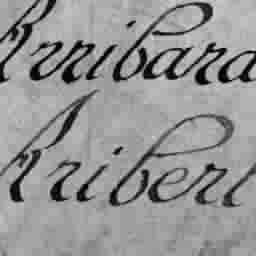 Arribara
Aribert